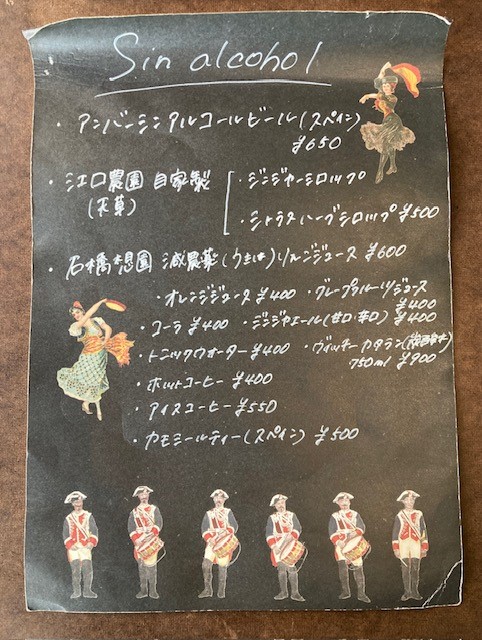 Sin alcohol
・アンバーシンアルコールビール(スペイン)
¥650
・江口農園 自家製
(天草)
・ジンジャーシロップ
・シトラスハーブシロップ ¥500
・石橋想園 減農薬(うきは)りんごジュース ¥600
・オレンジジュース ¥400 ・グレープフルーツジュース
¥400
・コーラ ¥400 ・ジンジャエール(甘口・辛口) ¥400
・トニックウォーター ¥400 ・ヴィッチーカタラン(
750ml ¥900
・ホットコーヒー ¥400
・アイスコーヒー ¥550
・カモミールティー(スペイン) ¥500